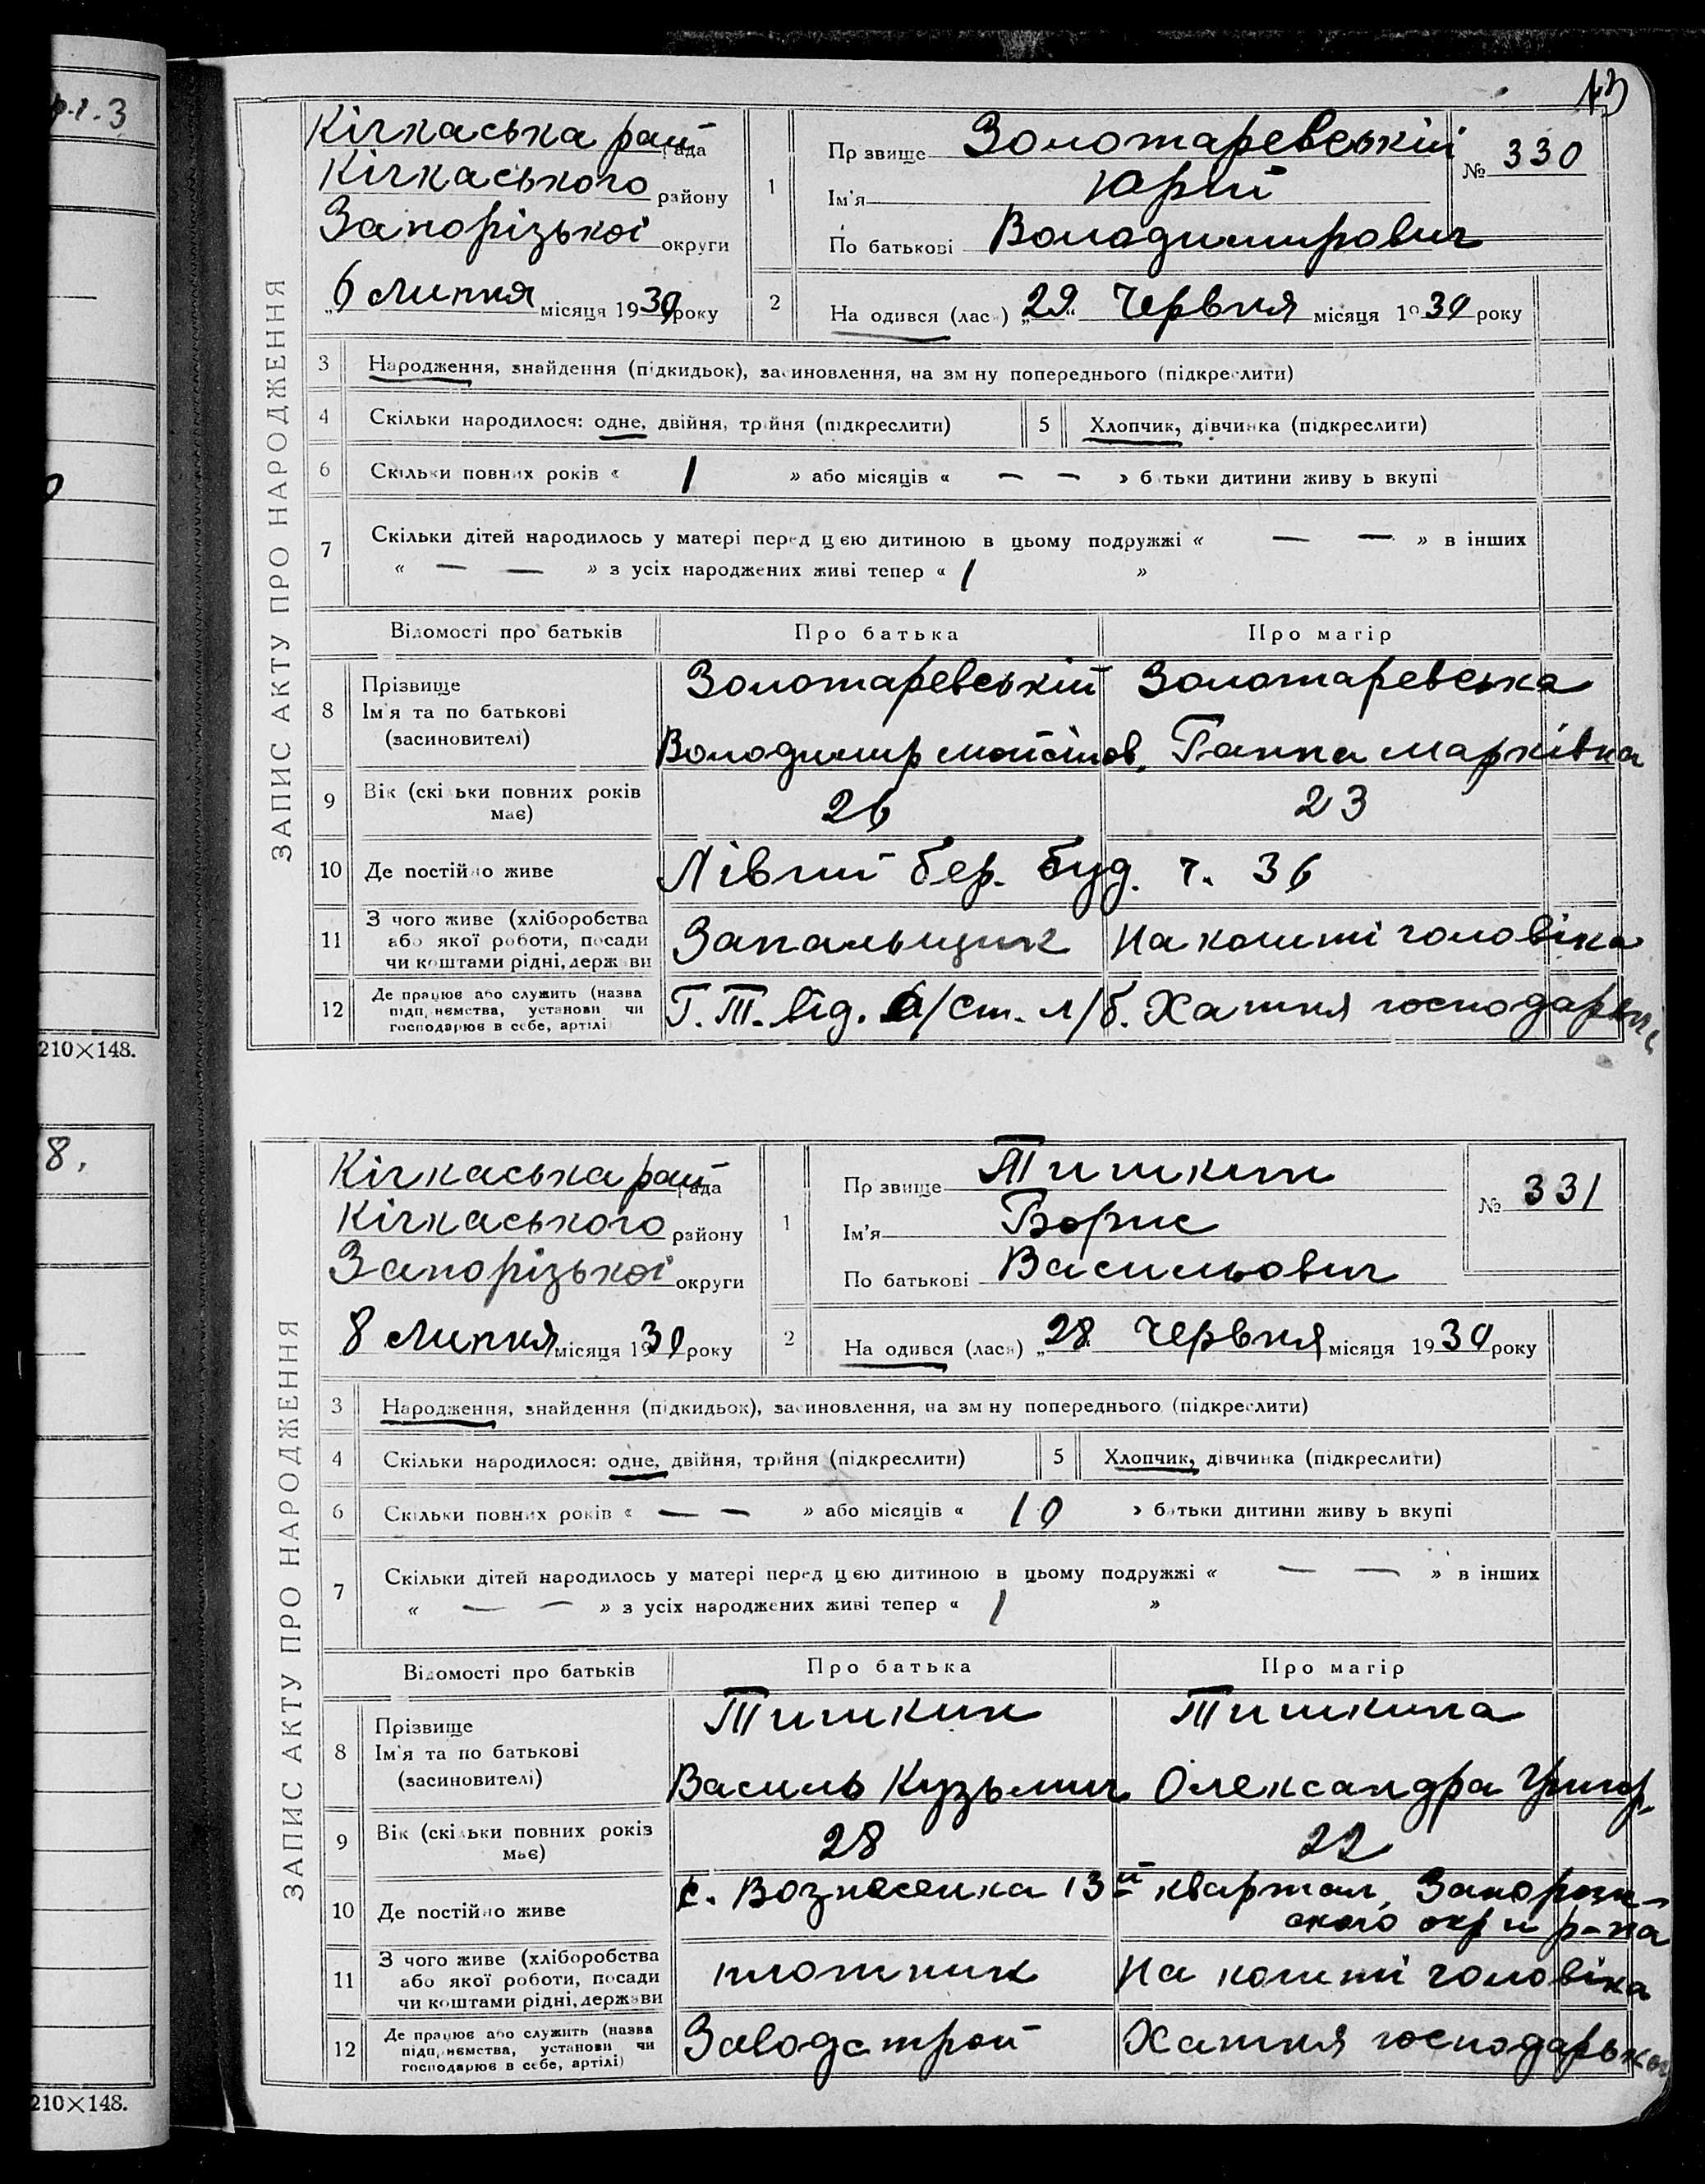 р-1-3
210×148.
8.
210×148.
13
ЗАПИС АКТУ ПРО НАРОДЖЕННЯ
Кічкаська рай рада
Кічкаського району
Запорізької округи
„6 Липня місяця 1930 року
1
Пр звище Золотаревський
№ 330
Ім'я Юрій
По батькові Володимирович
2
На одився (лась) „29" Червня місяця 1930 року
3 Народження, знайдення (підкидьок), засиновлення, на зм ну попереднього (підкреслити)
4 Скільки народилося: одне, двійня, трійня (підкреслити) 5 Хлопчик, дівчинка (підкреслити)
6 Скільки повних років « 1 » або місяців « — — » батьки дитини живу ь вкупі
7 Скільки дітей народилось у матері перед цією дитиною в цьому подружжі « — — » в інших
« — — » з усіх народжених живі тепер « 1 »
Відомості про батьків Про батька Про матір
8 Прізвище
Ім'я та по батькові
(засиновителі)
Золотаревський Золотаревська
Володимир Мойсійов. Ганна Марківна
9 Вік (скільки повних років має) 26 23
10 Де постійно живе Лівий бер. буд. ч. 36
11 З чого живе (хліборобства
або якої роботи, посади
чи коштами рідні, держави
Запальщик На кошті чоловіка
12 Де працює або служить (назва
підприємства, установи чи
господарює в себе, артілі)
Г. Т. від. /ст. л/б. Хатня господарка
ЗАПИС АКТУ ПРО НАРОДЖЕННЯ
Кічкаська рай рада
Кічкаського району
Запорізької округи
8 Липня місяця 1930 року
1
Пр звище Тишкин
№ 331
Ім'я Борис
По батькові Васильович
2
На одився (лася) „28" Червня місяця 1930 року
3 Народження, знайдення (підкидьок), засиновлення, на зм ну попереднього (підкреслити)
4 Скільки народилося: одне, двійня, трійня (підкреслити) 5 Хлопчик, дівчинка (підкреслити)
6 Скільки повних років « — — » або місяців « 10 » батьки дитини живу ь вкупі
7 Скільки дітей народилось у матері перед цією дитиною в цьому подружжі « — — » в інших
« — — » з усіх народжених живі тепер « 1 »
Відомості про батьків Про батька Про матір
8 Прізвище
Ім'я та по батькові
(засиновителі)
Тишкин Тишкина
Василь Кузьмич Олександра Григор.
9 Вік (скільки повних років має) 28 22
10 Де постійно живе с. Вознесенка 13й квартал, Запорож-
ского окр и р-на
11 З чого живе (хліборобства
або якої роботи, посади
чи коштами рідні, держави
плотник На кошті чоловіка
12 Де працює або служить (назва
підприємства, установи чи
господарює в себе, артілі)
Заводстрой Хатня господарька